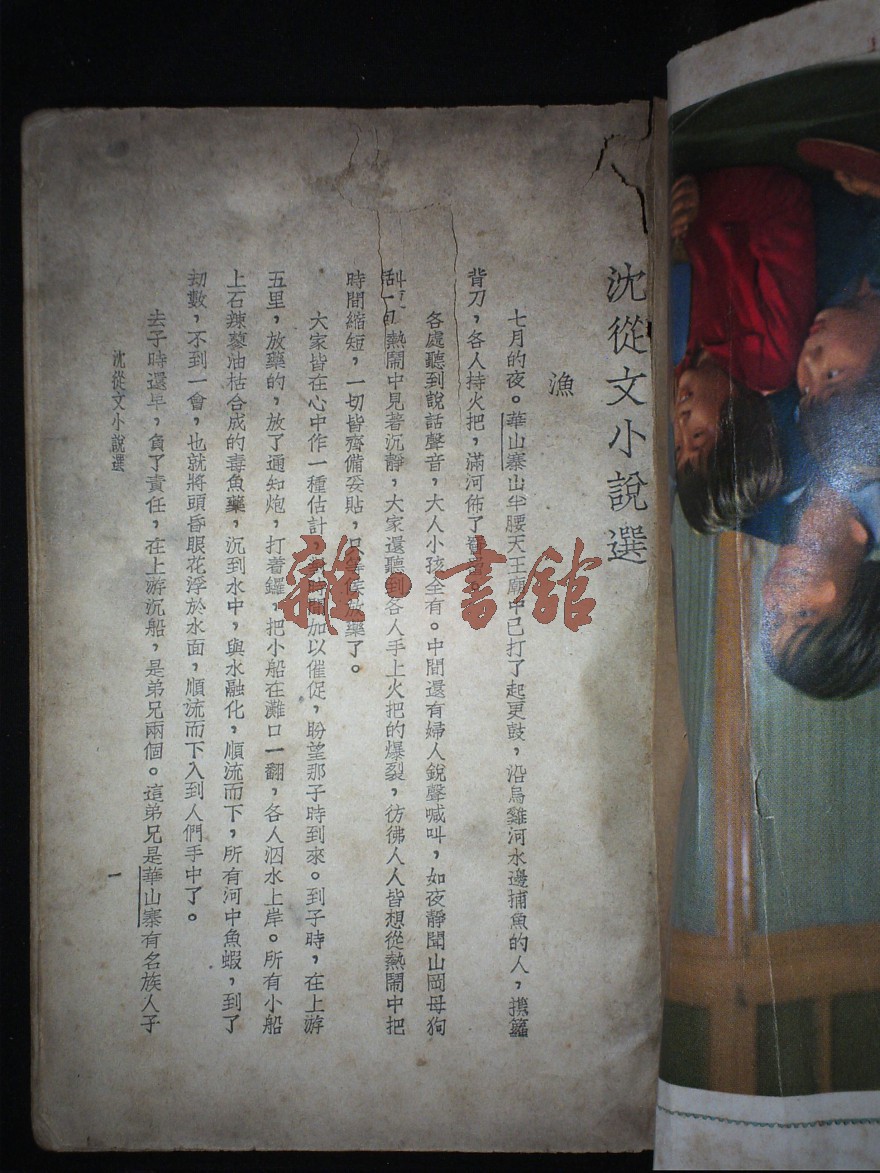 沈從文小說選
漁
七月的夜。華山寨山半腰天王廟中已打了起更鼓，沿烏雞河水邊捕魚的人，攜籮
背刀，各人持火把，滿河佈了
各處聽到說話聲音，大人小孩全有。中間還有婦人銳聲喊叫，如夜靜聞山岡母狗
熱鬧中見著沉靜，大家還聽到各人手上火把的爆裂，彷彿人人皆想從熱鬧中把
時間縮短，一切皆齊備妥貼，只等候放藥了。
大家皆在心中作一種估計，對時間加以催促，盼望那子時到來。到子時，在上游
五里，放藥的，放了通知炮，打着鑼，把小船在灘口一翻，各人泅水上岸。所有小船
上石辣蓼油枯合成的毒魚藥，沉到水中，與水融化，順流而下，所有河中魚蝦，到了
劫數，不到一會，也就將頭昏眼花浮於水面，順流而下入到人們手中了。
去子時還早，負了責任，在上游沉船，是弟兄兩個。這弟兄是華山寨有名族人子
沈從文小說選
一
雜·書館